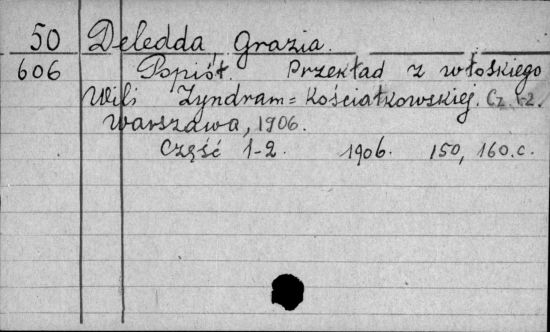 50 Deledda, Grazia.
606 Popiół. Przekład z włoskiego
Wili Zyndram=Kościałkowskiej. Cz. 1-2.
Warszawa, 1906.
Część 1-2. 1906. 150, 160.c.